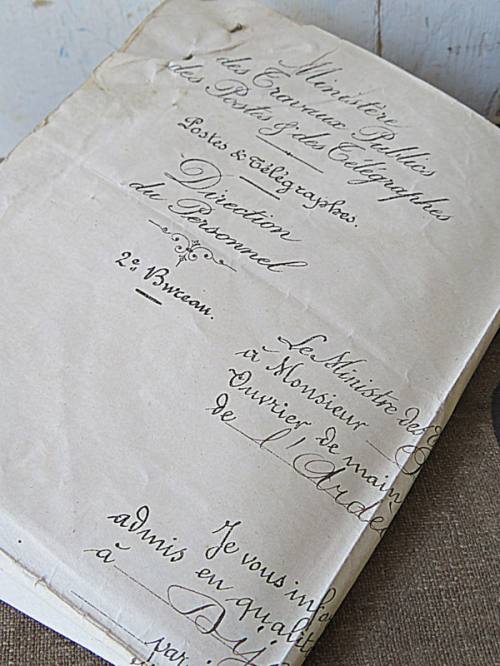 Ministère
des Travaux Publics
des Postes & des Télégraphes
Postes & Télégraphes.
Direction
du Personnel
2e Bureau.
Le Ministre des
à Monsieur
Ouvrier de main
de l'Ardè
Je vous info
admis en qualit
à Dij
par